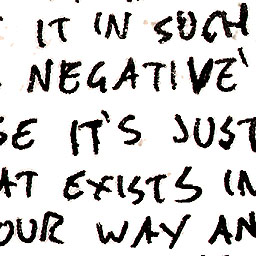 IT IN SUCH
NEGATIVE'
SE IT'S JUST
AT EXISTS IN
OUR WAY AN